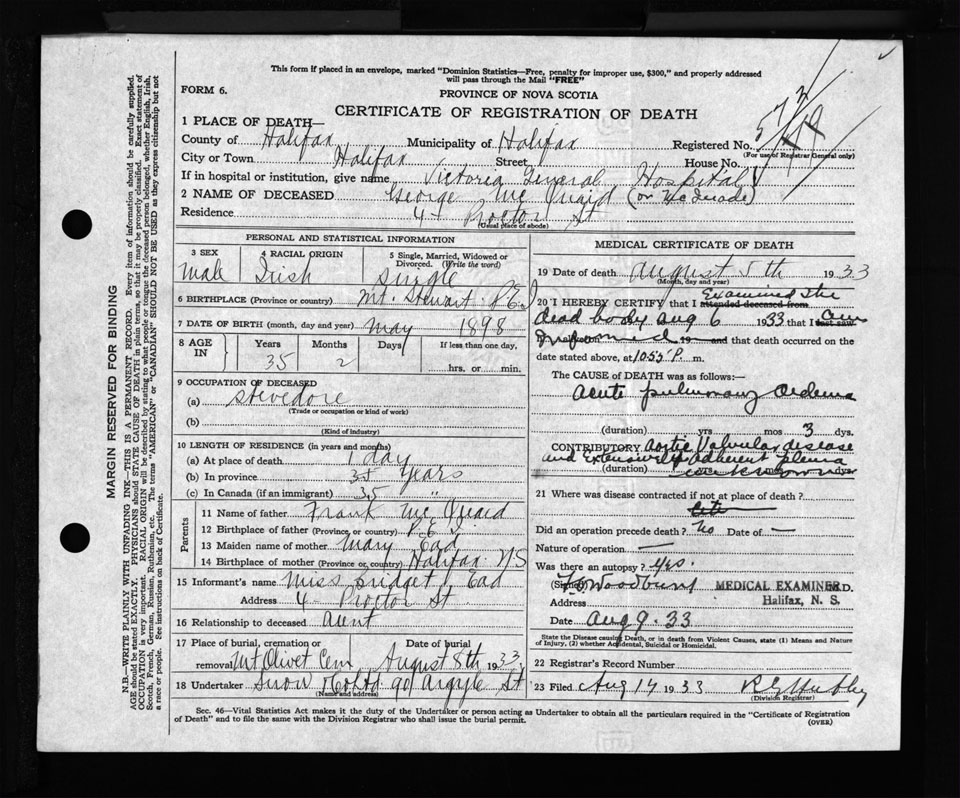 This form if placed in an envelope, marked "Dominion Statistics—Free, penalty for improper use, $300," and properly addressed
will pass through the Mail "FREE"
FORM 6.
PROVINCE OF NOVA SCOTIA
CERTIFICATE OF REGISTRATION OF DEATH
1 PLACE OF DEATH—
County of Halifax Municipality of Halifax Registered No.
(For use of Registrar General only)
City or Town Halifax Street House No.
If in hospital or institution, give name Victoria General Hospital
2 NAME OF DECEASED George Mc Quaid (or McQuade)
Residence 4 Proctor St
(Usual place of abode)
PERSONAL AND STATISTICAL INFORMATION
3 SEX Male
4 RACIAL ORIGIN Irish
5 Single, Married, Widowed or Divorced. (Write the word) Single
6 BIRTHPLACE (Province or country) Mt. Stewart P.E.I
7 DATE OF BIRTH (month, day and year) May 1898
8 AGE IN Years 35 Months 2 Days If less than one day, hrs. or min.
9 OCCUPATION OF DECEASED
(a) Stevedore
(Trade or occupation or kind of work)
(b)
(Kind of industry)
10 LENGTH OF RESIDENCE (in years and months)
(a) At place of death 1 day
(b) In province 35 Years
(c) In Canada (if an immigrant) 35 "
Parents
11 Name of father Frank Mc Quaid
12 Birthplace of father (Province or country) P.E.I
13 Maiden name of mother Mary Ead
14 Birthplace of mother (Province or country) Halifax NS
15 Informant's name Miss Bridget Ead
Address 4 Proctor St.
16 Relationship to deceased Aunt
17 Place of burial, cremation or removal Mt Olivet Cem Date of burial August 8th 1933
18 Undertaker Snow & Co Ltd 90 Argyle St
(Name and address)
MEDICAL CERTIFICATE OF DEATH
19 Date of death August 5th 1933
(Month, day and year)
20 I HEREBY CERTIFY that I attended deceased from Examined the
dead body Aug 6 1933 that I last saw am
informed 19 and that death occurred on the
date stated above, at 10.55 P. m.
The CAUSE of DEATH was as follows:—
Acute pulmonary oedema
(duration) yrs mos 3 dys.
CONTRIBUTORY Aortic Valvular disease
and extensively adherent pleura
(duration) unknown dys
21 Where was disease contracted if not at place of death?
Did an operation precede death? No Date of —
Nature of operation —
Was there an autopsy? Yes.
(Signed) Woodbury MEDICAL EXAMINER M.D.
Address Halifax, N. S.
Date Aug 9. 33
State the Disease causing Death, or in death from Violent Causes, state (1) Means and Nature
of Injury, (2) whether Accidental, Suicidal or Homicidal.
22 Registrar's Record Number
23 Filed Aug 14 1933
(Division Registrar)
Sec. 46—Vital Statistics Act makes it the duty of the Undertaker or person acting as Undertaker to obtain all the particulars required in the "Certificate of Registration
of Death" and to file the same with the Division Registrar who shall issue the burial permit.
(OVER)
MARGIN RESERVED FOR BINDING
N.B.—WRITE PLAINLY WITH UNFADING INK—THIS IS A PERMANENT RECORD. Every item of information should be carefully supplied.
AGE should be stated EXACTLY. PHYSICIANS should STATE CAUSE OF DEATH in plain terms, so that it may be properly classified. Exact statement of
OCCUPATION is very important. RACIAL ORIGIN will be described by stating to what people or tongue the deceased person belonged, whether English, Irish,
Scotch, French, German, Russian, Ruthenian, etc. The terms "AMERICAN" or "CANADIAN" SHOULD NOT BE USED as they express citizenship but not
a race or people. See instructions on back of Certificate.